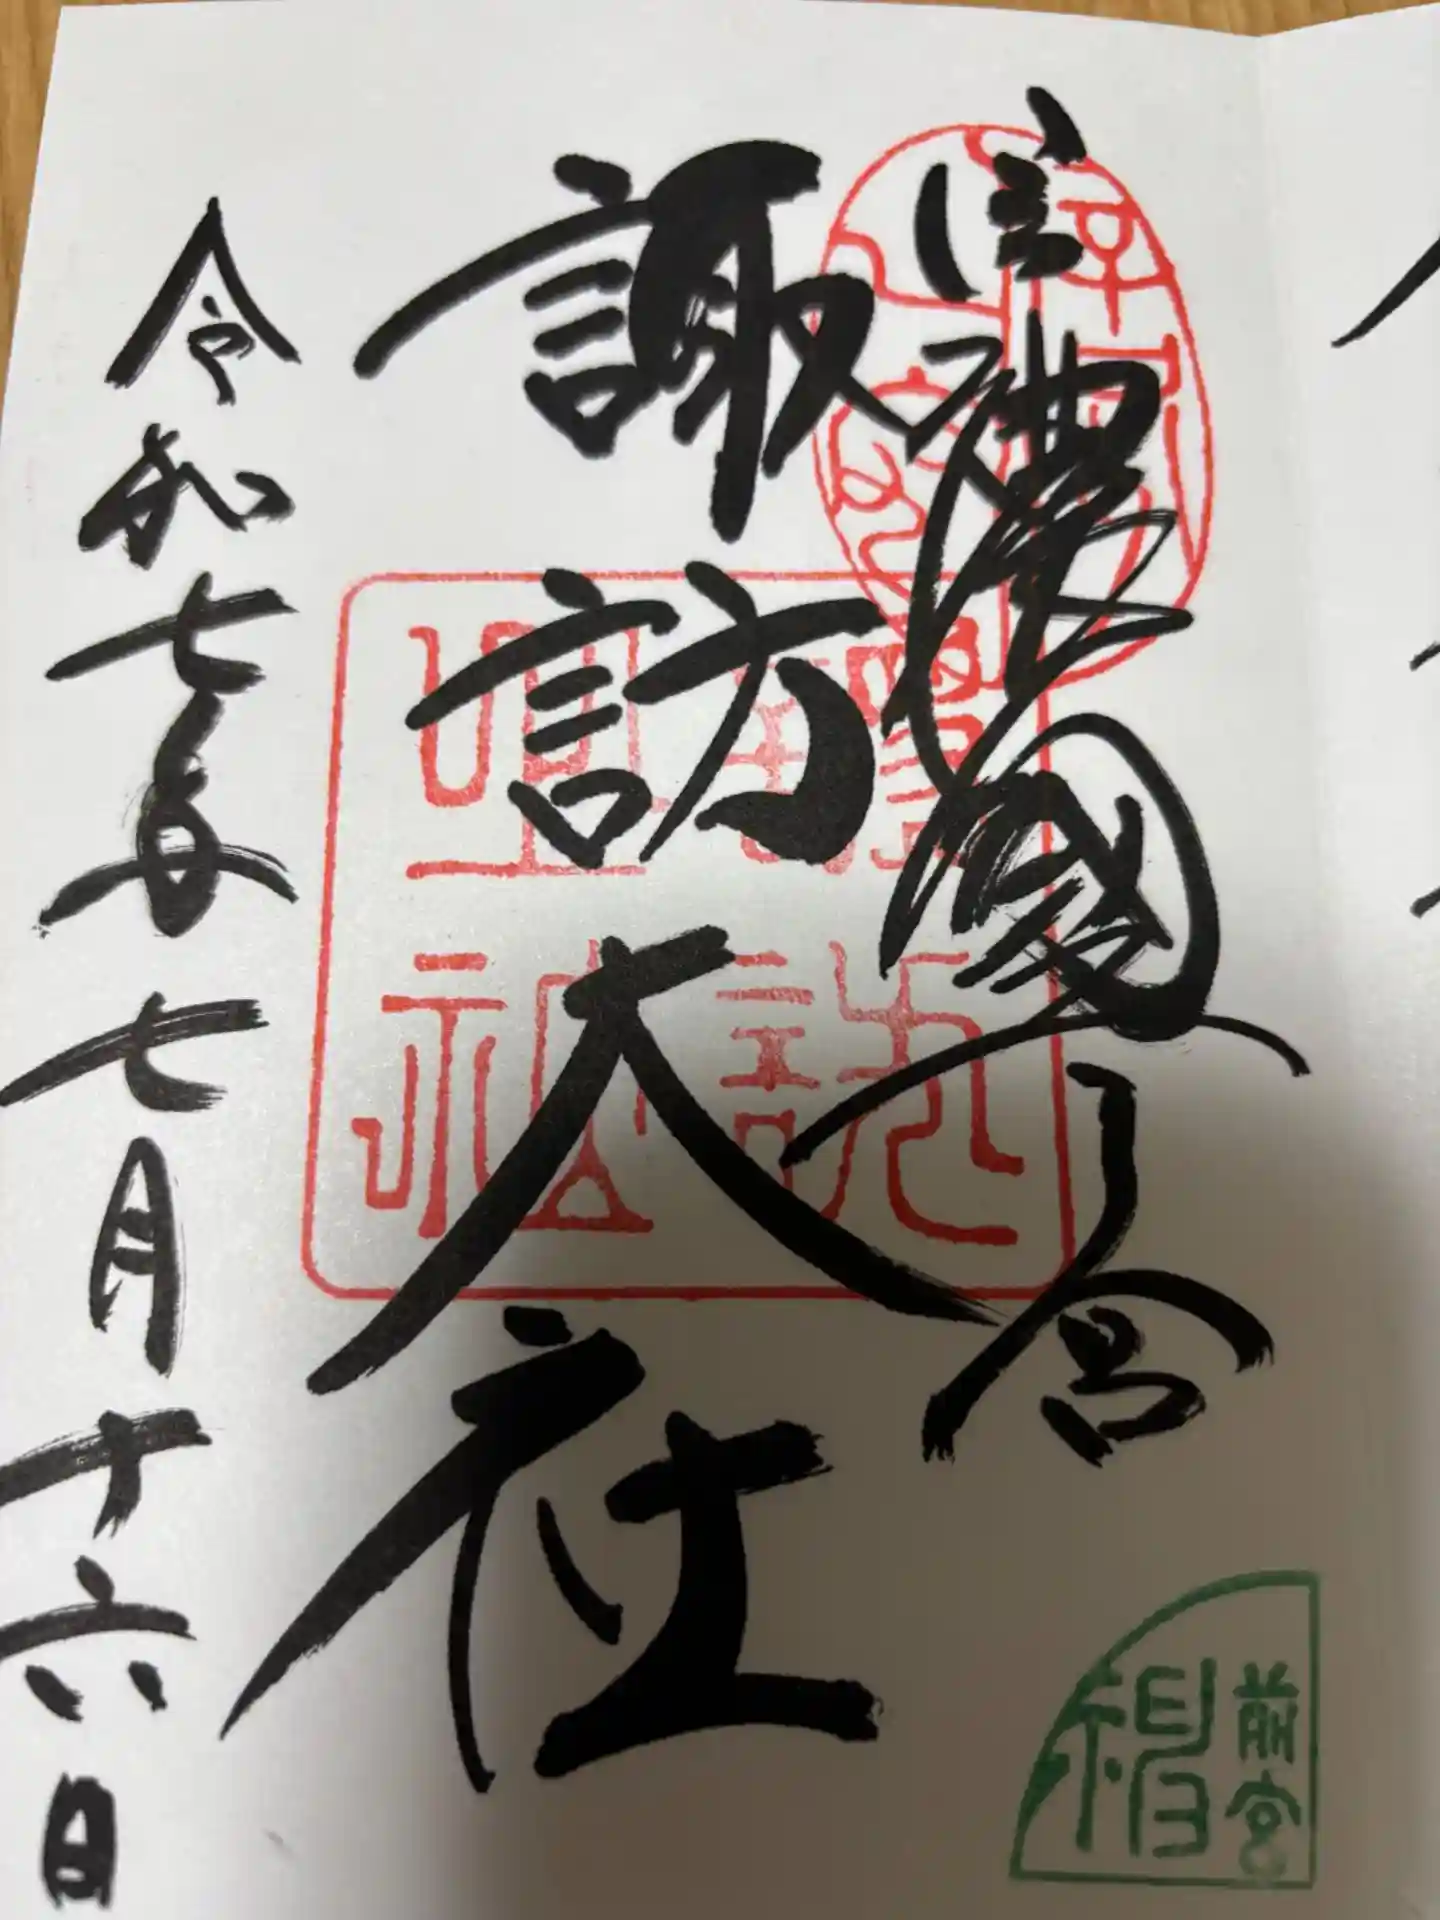 信濃國一之宮
諏訪大社
令和七年七月十六日
前宮